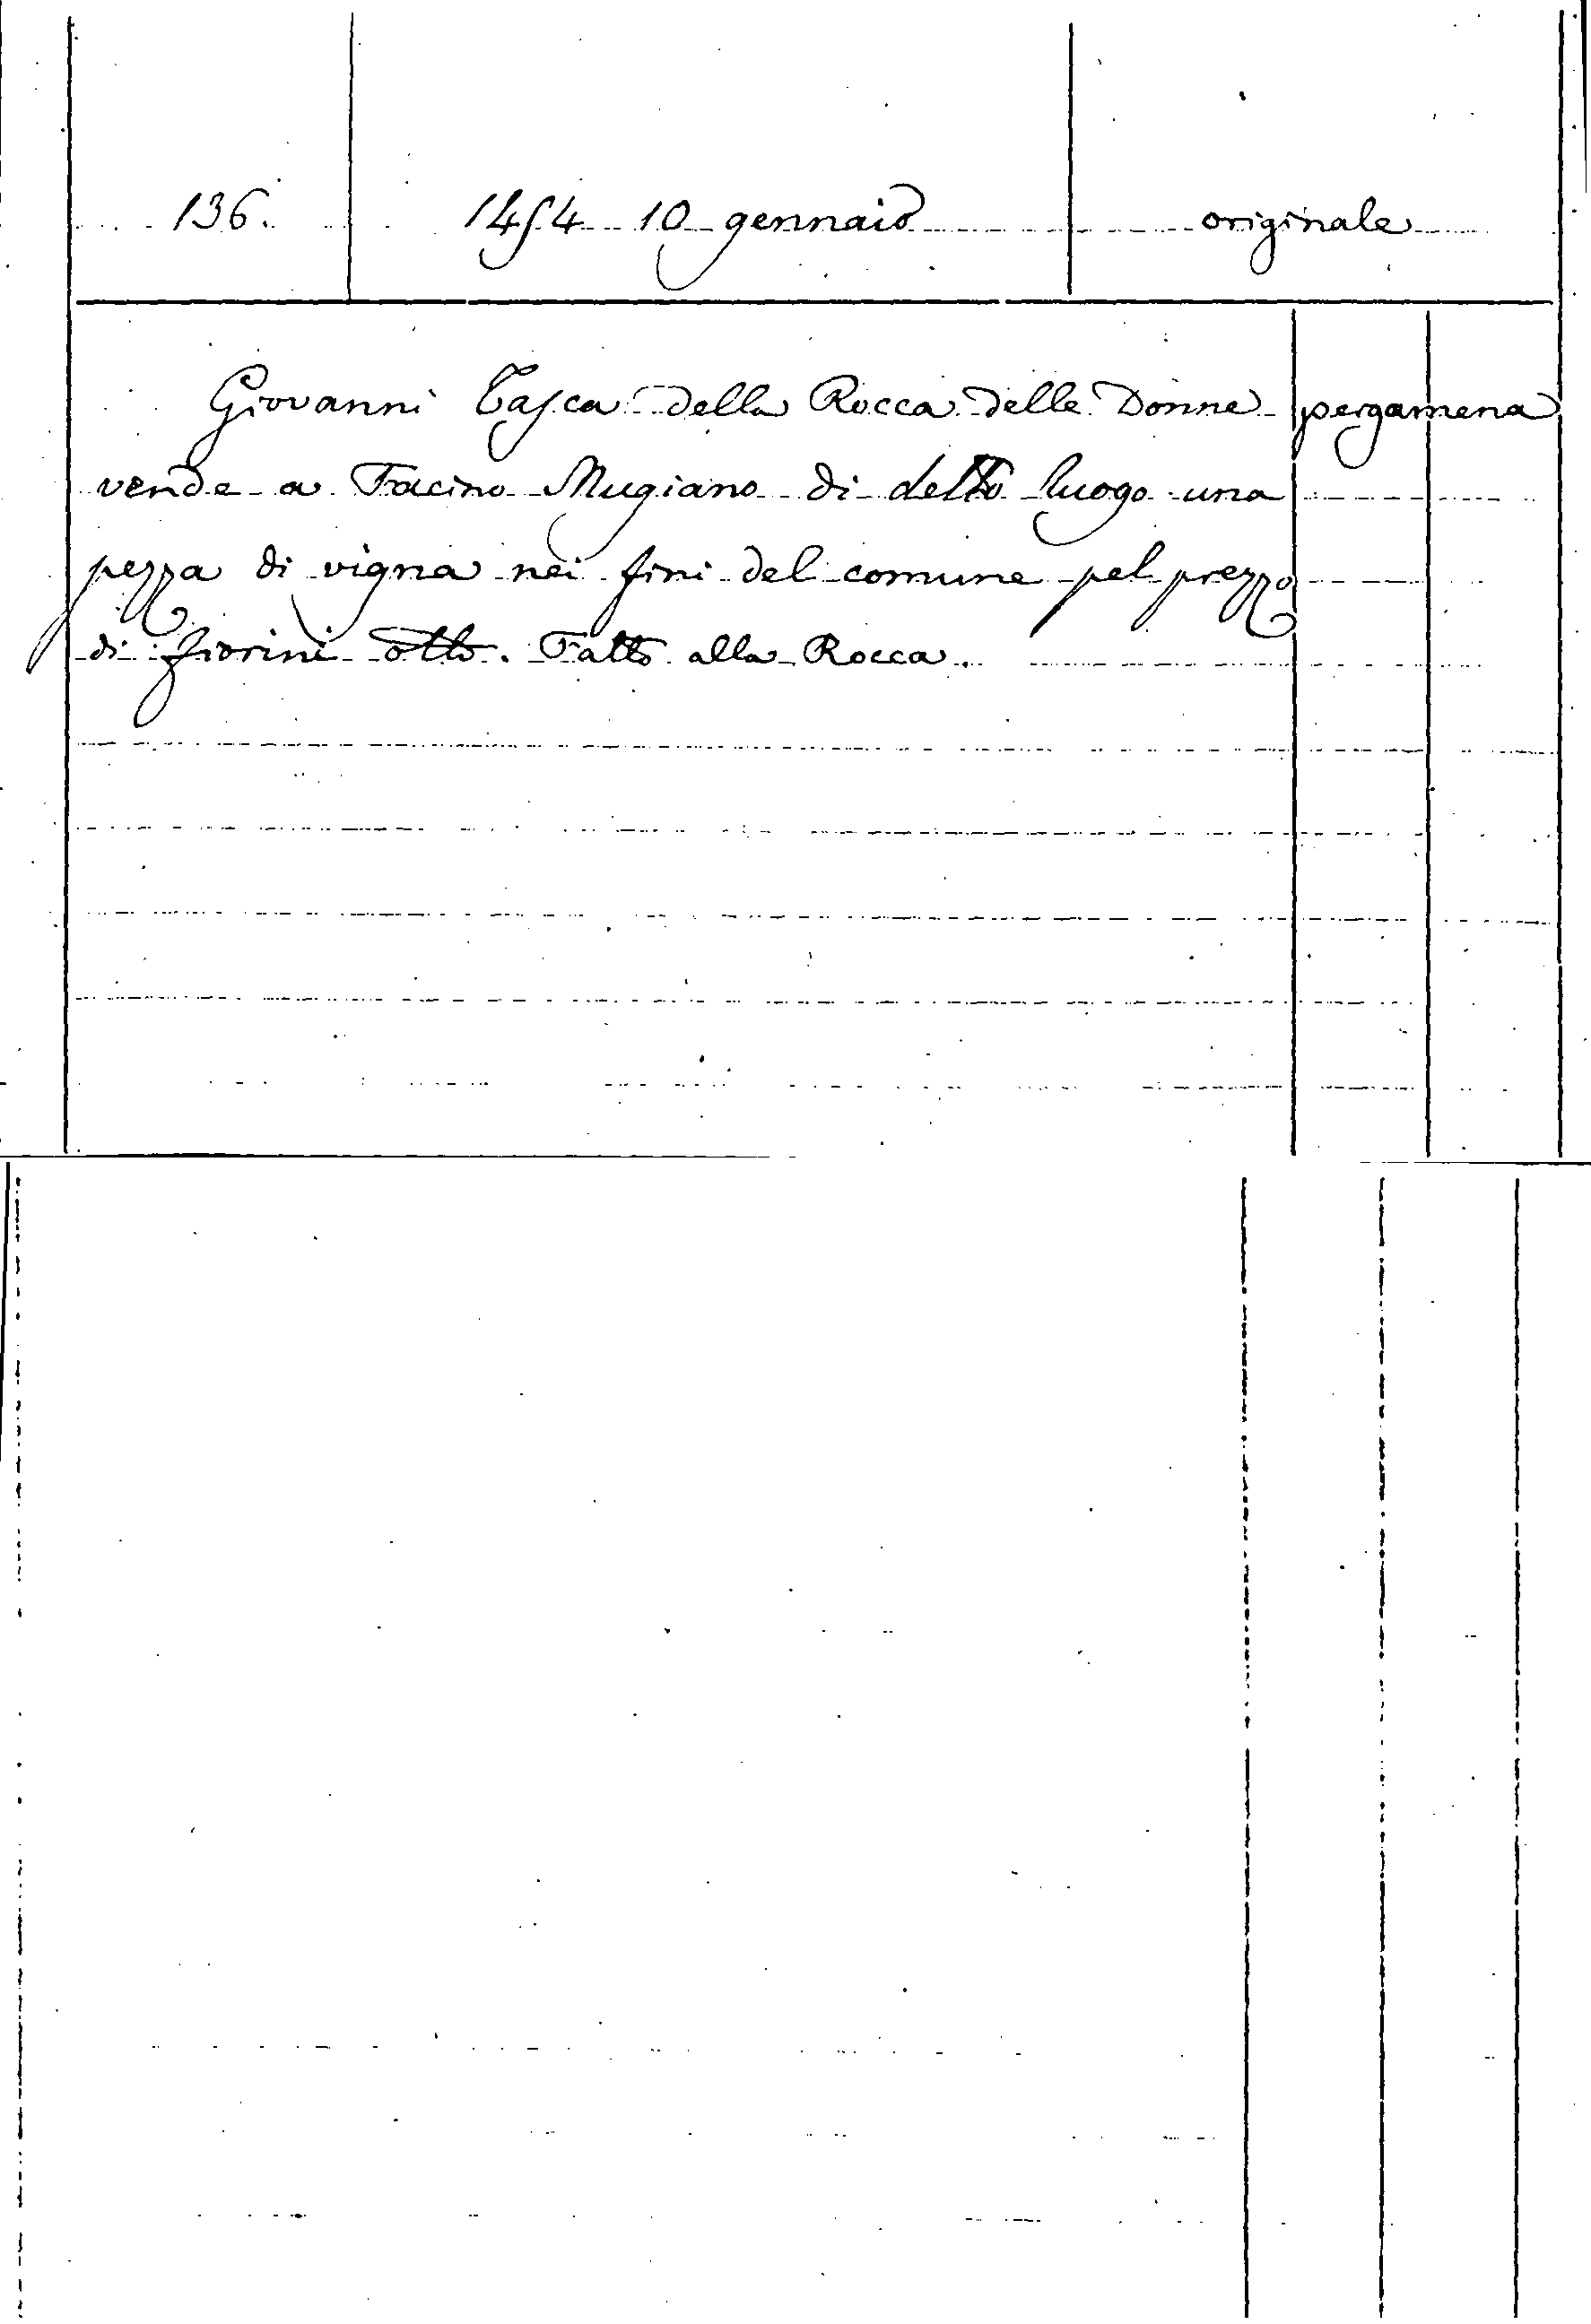 136. 1454 10 gennaio originale
Giovanni Tasca della Rocca delle Donne pergamena
vende a Facino Mugiano di detto luogo una
pezza di vigna nei fini del comune pel prezzo
di fiorini otto. Fatto alla Rocca.